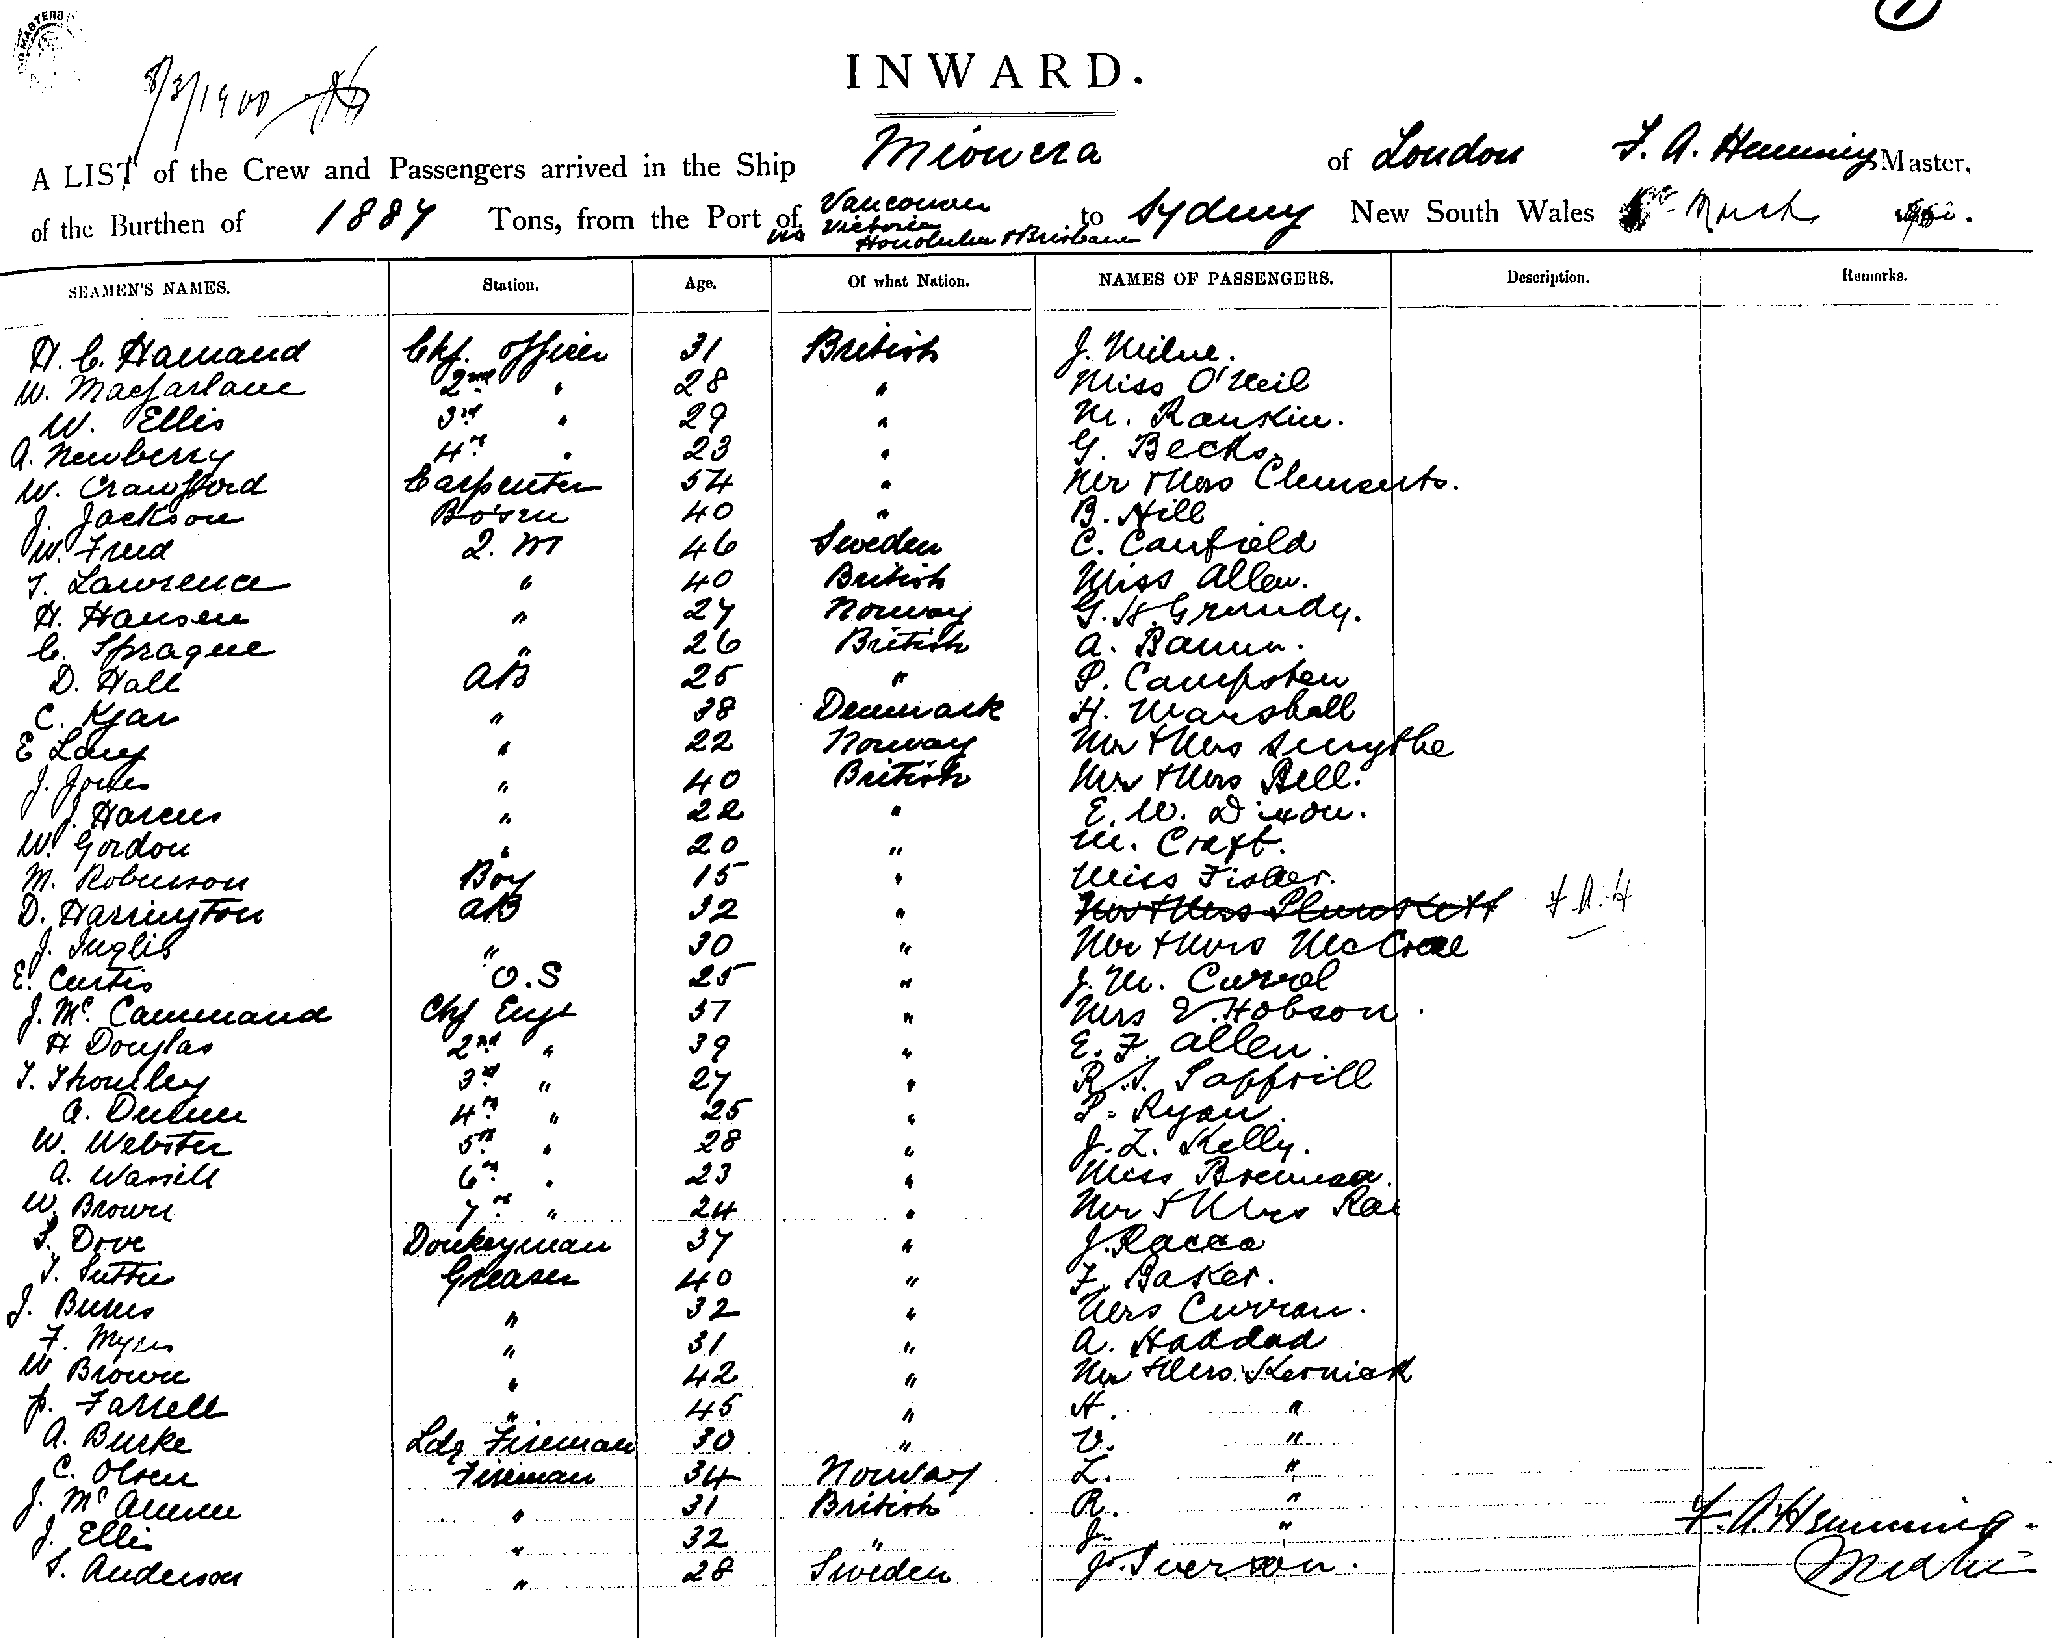 8/3/1900
INWARD.
A LIST of the Crew and Passengers arrived in the Ship Miowera of London F. A. Hemming Master,
of the Burthen of 1887 Tons, from the Port of Vancouver via Victoria Honolulu & Brisbane to Sydney New South Wales March
SEAMEN'S NAMES. Station. Age. Of what Nation. NAMES OF PASSENGERS. Description. Remarks.
H. C. Hamand Chf. officer 31 British J. Milne.
W. Macfarlane 2nd " 28 " Miss O'Neil
W. Ellis 3rd " 29 " M. Rankin.
A. Newberry 4th " 23 " G. Becks.
W. Crawford Carpenter 54 " Mr & Mrs Clements.
J. Jackson Bo'sn 40 " B. Hill
W. Frud Q. M 46 Sweden C. Canfield
T. Lawrence " 40 British Miss Allen.
H. Hansen " 27 Norway G. H. Grundy.
C. Sprague " 26 British A. Baumn.
D. Hall AB 25 " P. Campsten
C. Kjar " 38 Denmark H. Marshall
E Lang " 22 Norway Mr & Mrs Smythe
J. Jones " 40 British Mr & Mrs Bell.
J. Harcus " 22 " E. W. Dixon.
W. Gordon " 20 " M. Craft.
M. Robinson Boy 15 " Miss Fisher.
D. Harrington AB 32 " Mr & Mrs Plunskett F A. H
J. Inglis " 30 " Mr & Mrs McCrae
E. Curtis O.S 25 " J. M. Currol
J. Mc. Cammand Chf Engr 37 " Mrs E. Hobson.
H Douglas 2nd " 39 " E. F. Allen.
T. Thomley 3rd " 27 " R. S. Saffrill
A. Dunn 4th " 25 " P. Ryan.
W. Webster 5th " 28 " J. L. Kelly.
A. Warrill 6th " 23 " Miss Brennan.
W. Brown 7th " 24 " Mr & Mrs Rae
S. Dove Donkeyman 37 " J. Racca
T. Suttie Greaser 40 " F. Baker.
J. Burns " 32 " Mrs Curran.
F. Myers " 31 " A. Haddad
W Brown " 42 " Mr & Mrs Kerniak
P. Farrell " 45 " H. "
A. Burke Ldg Fireman 30 " V. "
C. Olsen Fireman 34 Norway L. "
J. Mc " 31 British R. "
J. Ellis " 32 " J. "
S. Anderson " 28 Sweden J. Iverson.
F. A. Hemming.
Master